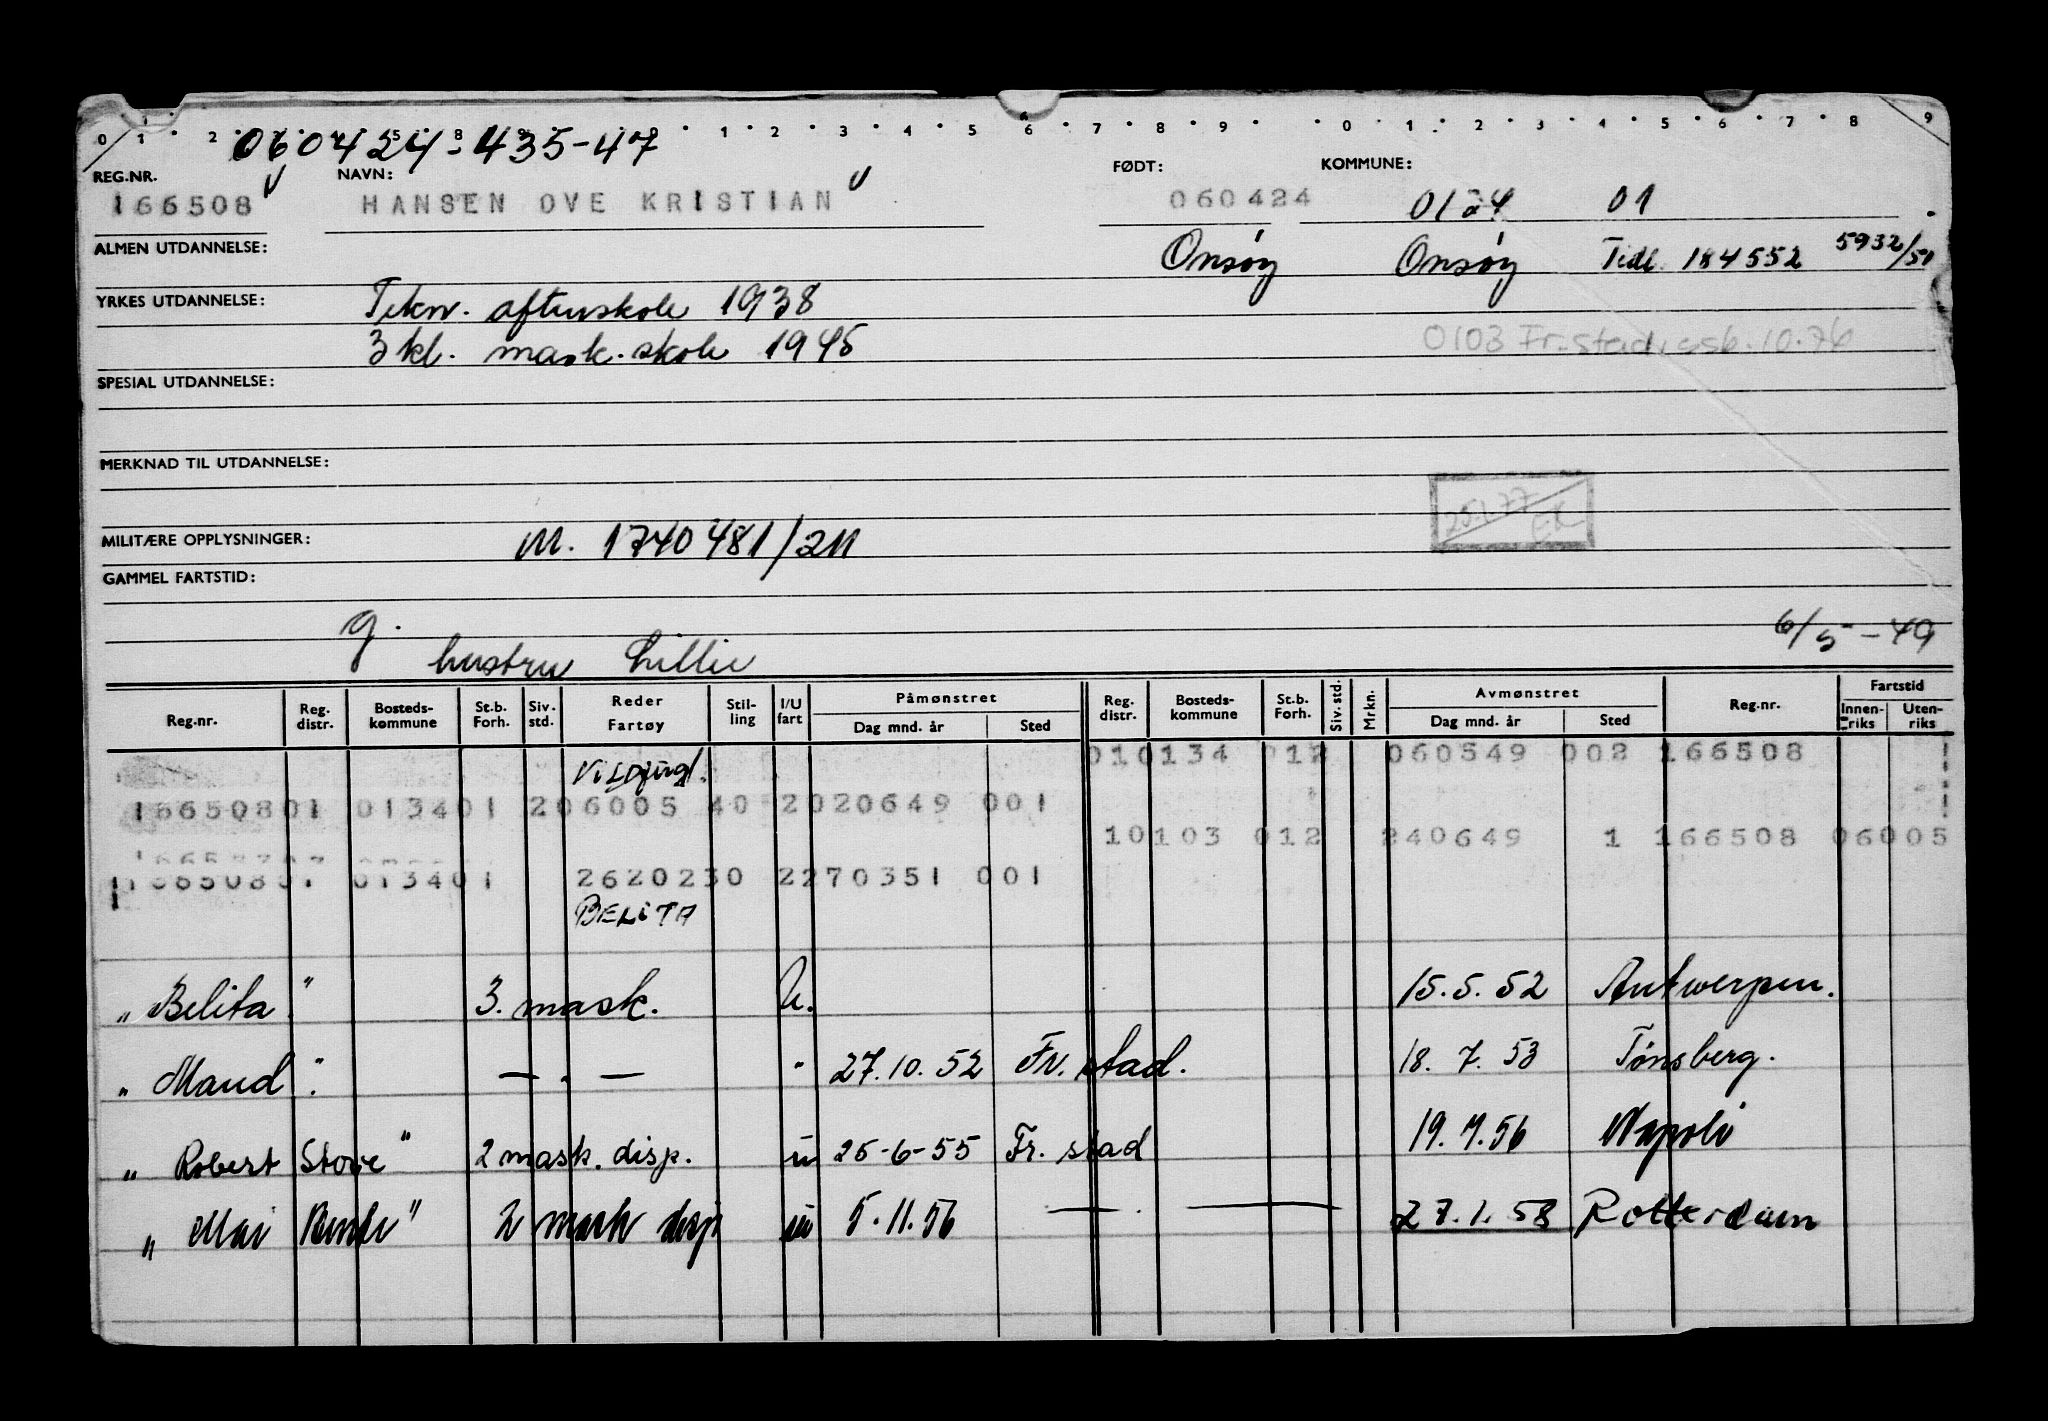 060424-435-47
REG.NR. NAVN: FØDT: KOMMUNE:
166508 HANSEN OVE KRISTIAN 060424 0124 01
ALMEN UTDANNELSE: Onsøy Onsøy Tidl. 184552 5932/51
YRKES UTDANNELSE: Tekn. aftenskole 1938
3 kl. mask.skole 1945 0103 Fr.stad, 10.76
SPESIAL UTDANNELSE:
MERKNAD TIL UTDANNELSE:
25.1.77
MILITÆRE OPPLYSNINGER: M. 1740481/211
GAMMEL FARTSTID:
g. hustru Lillie 6/5-49
Reg.nr. Reg. distr. Bosteds-kommune St.b. Forh. Siv. std. Reder Fartøy Stil-ling I/U fart Påmønstret Dag mnd. år Sted Reg. distr. Bosteds-kommune St.b. Forh. Siv. std. Mrkn. Avmønstret Dag mnd. år Sted Reg.nr. Fartstid Innen-riks Uten-riks
010134 012 060549 002 166508
16650801 013401 206005 40 2020649 001
10103 012 240649 1 166508 06005
16650801 013401 2620230 2270351 001
BELITA
"Belita" 3. mask. U. 15.5.52 Antwerpen.
"Maud" — . — " 27.10.52 Fr. stad. 18.7.53 Tønsberg.
"Robert Stove" 2 mask. disp. u 25-6-55 Fr. stad 19.7.56 Napoli
"Mai Rente" 2 mask disp u 5.11.56 — . — 27.1.58 Rotterdam